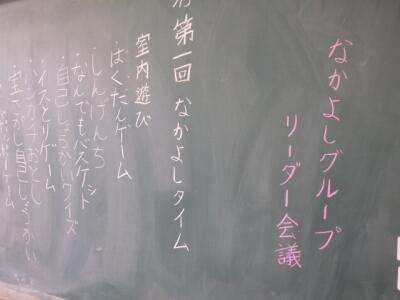 なかよしグループ
リーダー会議
第一回 なかよしタイム
室内遊び
・ばくだんゲーム
・しんげんち
・なんでもバスケット
・自己しょうかいクイズ
・イスとりゲーム
・ハンカチおとし